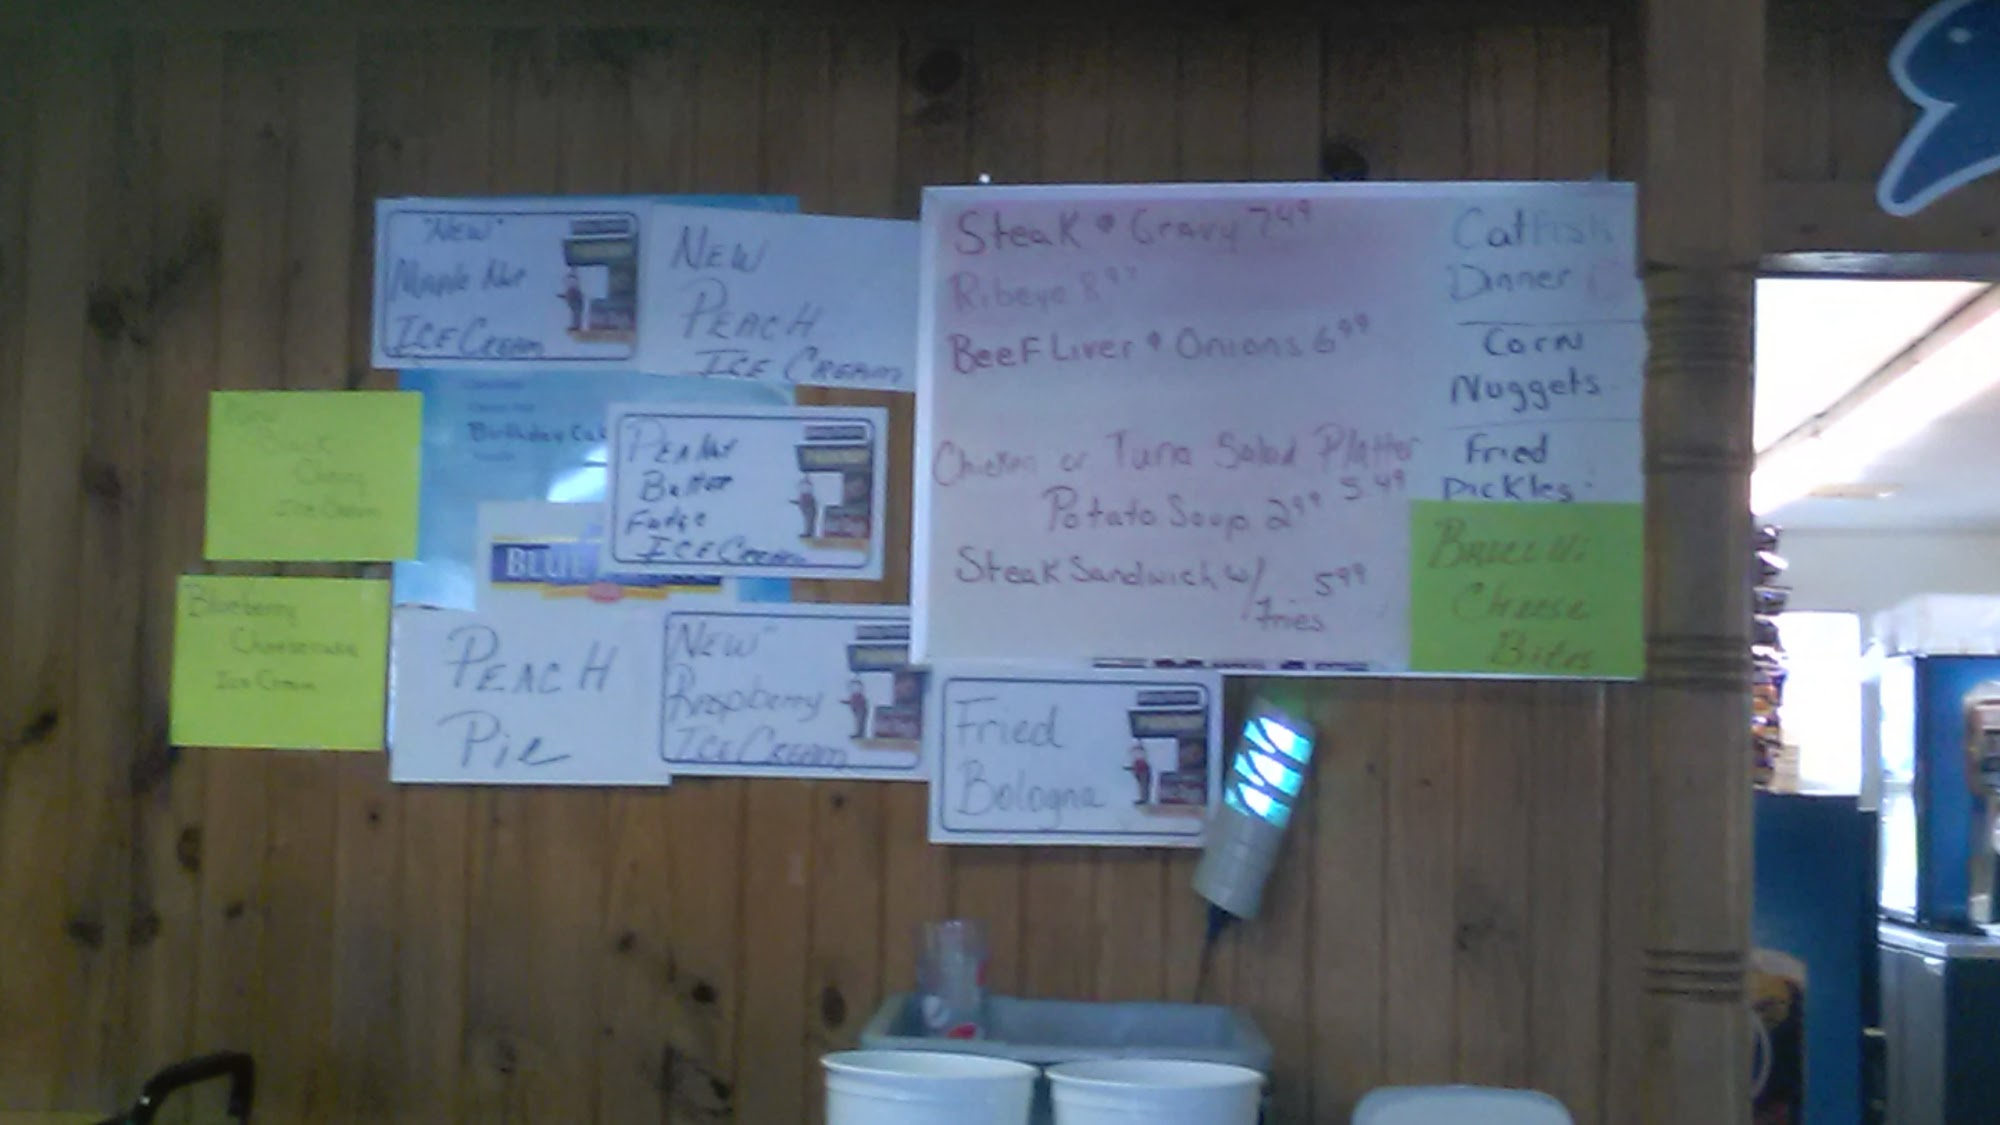 "NEW"
Maple Nut
ICE CREAM
NEW
PEACH
ICE CREAM
Birthday
Black
Cherry
Ice Cream
PEANUT
Butter
Fudge
ICE CREAM
BLUE
Blueberry
Cheesecake
Ice Cream
PEACH
Pie
NEW"
Raspberry
ICE CREAM
Fried
Bologna
Steak & Gravy 7.49
Ribeye
Beef Liver & Onions 6.99
Chicken or Tuna Salad Platter
5.49
Potato Soup 2.99
Steak Sandwich w/
Fries
5.99
Catfish
Dinner
Corn
Nuggets
Fried
Pickles
Broccoli
Cheese
Bites